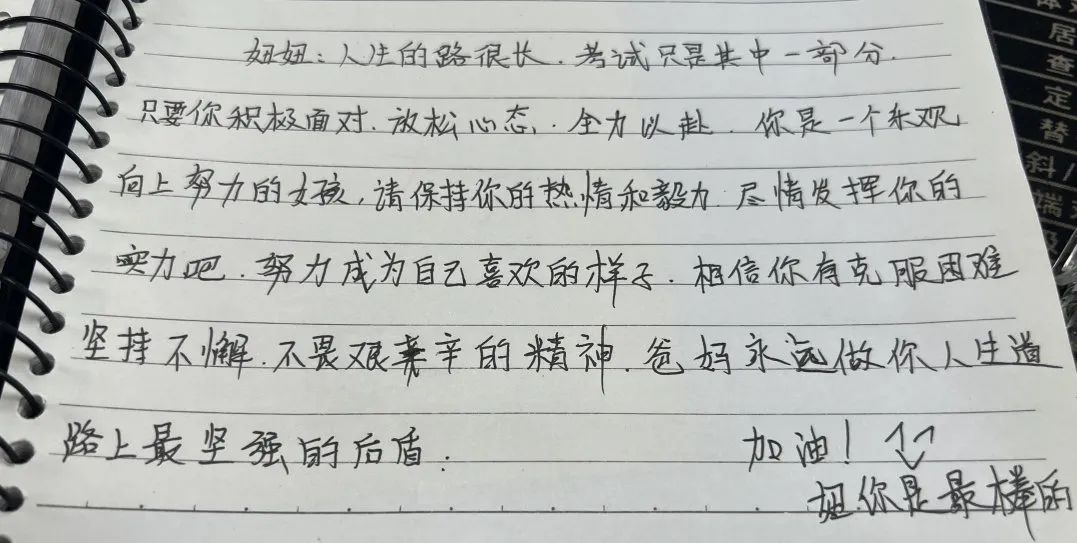 妞妞：人生的路很长.考试只是其中一部分.
只要你积极面对.放松心态.全力以赴.你是一个乐观
向上努力的女孩,请保持你的热情和毅力.尽情发挥你的
实力吧.努力成为自己喜欢的样子.相信你有克服困难
坚持不懈.不畏艰辛的精神.爸妈永远做你人生道
路上最坚强的后盾.
加油！
妞你是最棒的
居
查
定
替
斜/
端